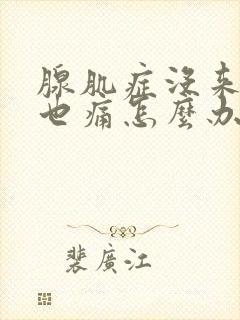 腺肌症没来
也痛怎麼办
裴廣江